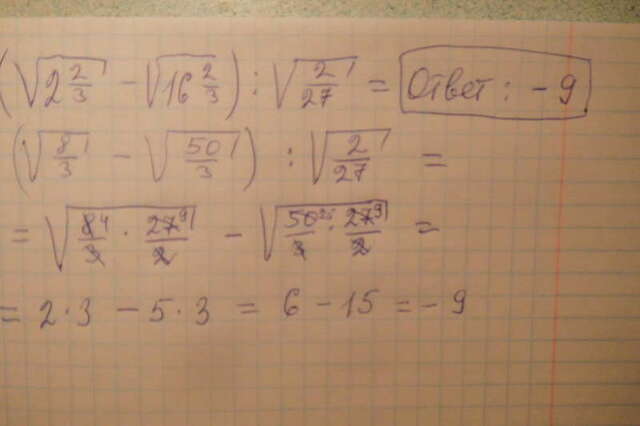 (√2 2/3 − √16 2/3) : √2/27 = Ответ: −9
(√8/3 − √50/3) : √2/27 =
= √8⁴/3 · 27⁹/2 − √50²⁵/3 · 27⁹/2 =
= 2·3 − 5·3 = 6 − 15 = −9